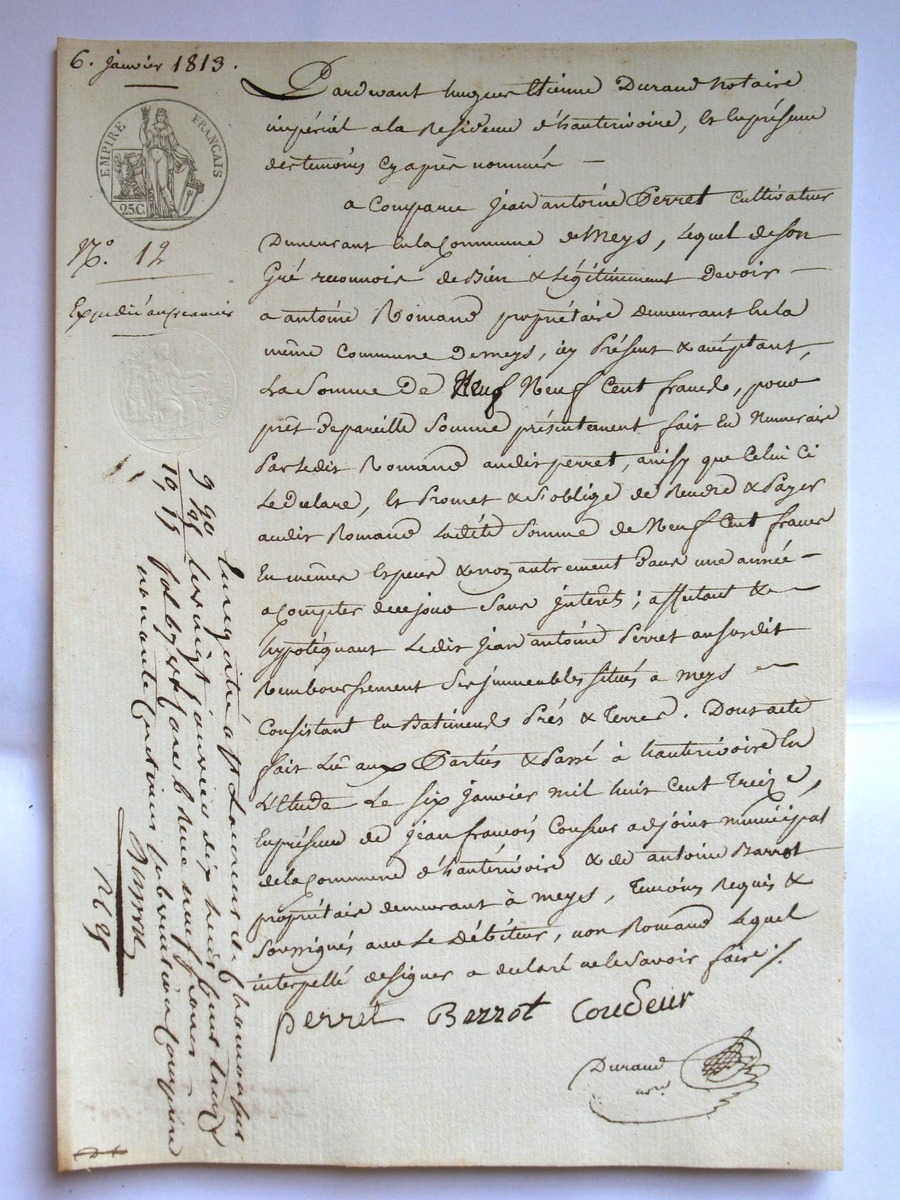 6. janvier 1813.
EMPIRE FRANÇAIS
25C
N.º 12
Expédié au creancier
Pardevant hugues Etienne Durand Notaire
impérial a la Residence d'hauterivoire, Et En présence
des temoins Cy après nommés —
a Comparu Jean antoine Perret Cultivateur
Demeurant En la Commune de Meys, Lequel de Son
Gré reconnois de Bien & Légitimement Devoir —
a antoine Romand propriétaire demeurant En la
même Commune De meys, icy Présent & acceptant,
La Somme De Neuf Neuf Cent francs, pour
prêt De pareille Somme présentement fait En Numeraire
Par Ledit Romand audit perret, ainsy que Celui Ci
Le Déclare, Et Promet & S'oblige de Rendre & Payer
audit Romand Ladite Somme de Neuf Cent francs
En mêmes Especes & non autrement Dans une année —
a Compter de ce jour Sans Interêts ; affectant &
hypotéquant Ledit Jean antoine Perret au Susdit
Remboursement Ses immeubles Situés a meys
Consistant En Batiments Prés & Terres. Dont acte
fait Lû aux Parties & Passé à hauterivoire En
L'Etude Le Six Janvier Mil huit Cent Treize,
En présence de Jean françois Couseur adjoint municipal
de la Commune d'hauterivoire & de antoine Barrot
propriétaire demeurant à Meys, Temoins Requis &
Soussignés avec Le Débiteur, non Romand Lequel
interpellé de signer a déclaré ne le Savoir faire ./.
perret Barrot Coudeur
Durand
nore
Enregistré à St Laurent de Chamousset
Le vingt janvier dix huit cent treize
fol. Case Reçu neuf francs
nonante Centimes Subvention Comprise
9 90
10,